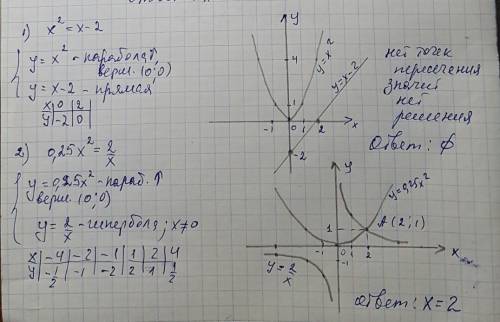 1) x² = x-2
{ y = x² - парабола↑,
верш. (0;0)
y = x-2 - прямая
x | 0 | 2
y | -2 | 0
y
4
y=x²
y=x-2
1
-1 0 2 x
-2
нет точек
пересечения
значит
нет
решения
Ответ: ∅
2) 0,25x² = 2/x
{ y = 0,25x² - параб. ↑
верш. (0;0)
y = 2/x - гипербола; x≠0
x | -4 | -2 | -1 | 1 | 2 | 4
y | -1/2 | -1 | -2 | 2 | 1 | 1/2
y
y=0,25x²
1 A(2;1)
-1 0 1 2 x
-1
y = 2/x
Ответ: x=2